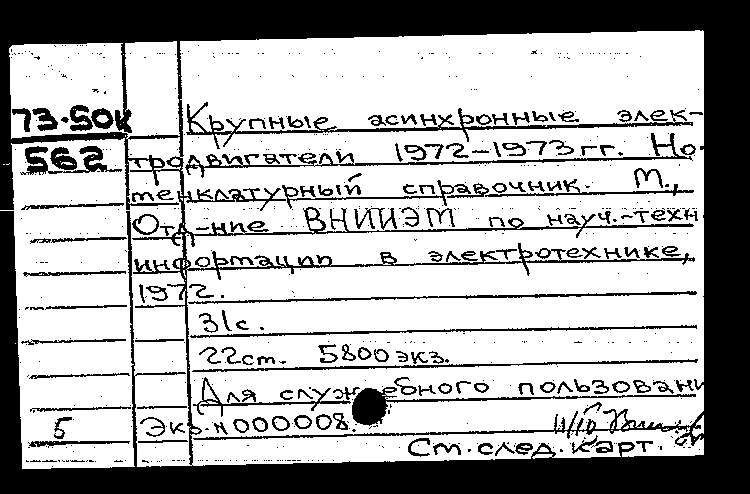 73-50к Крупные асинхронные элек-
562 тродвигатели 1972-1973 гг. Но-
менклатурный справочник. М.,
Отд-ние ВНИИЭМ по науч.-техн.
информации в электротехнике,
1972.
31с.
22см. 5800 экз.
Для служебного пользовани
Б Экз. N 000008.
См. след. карт.